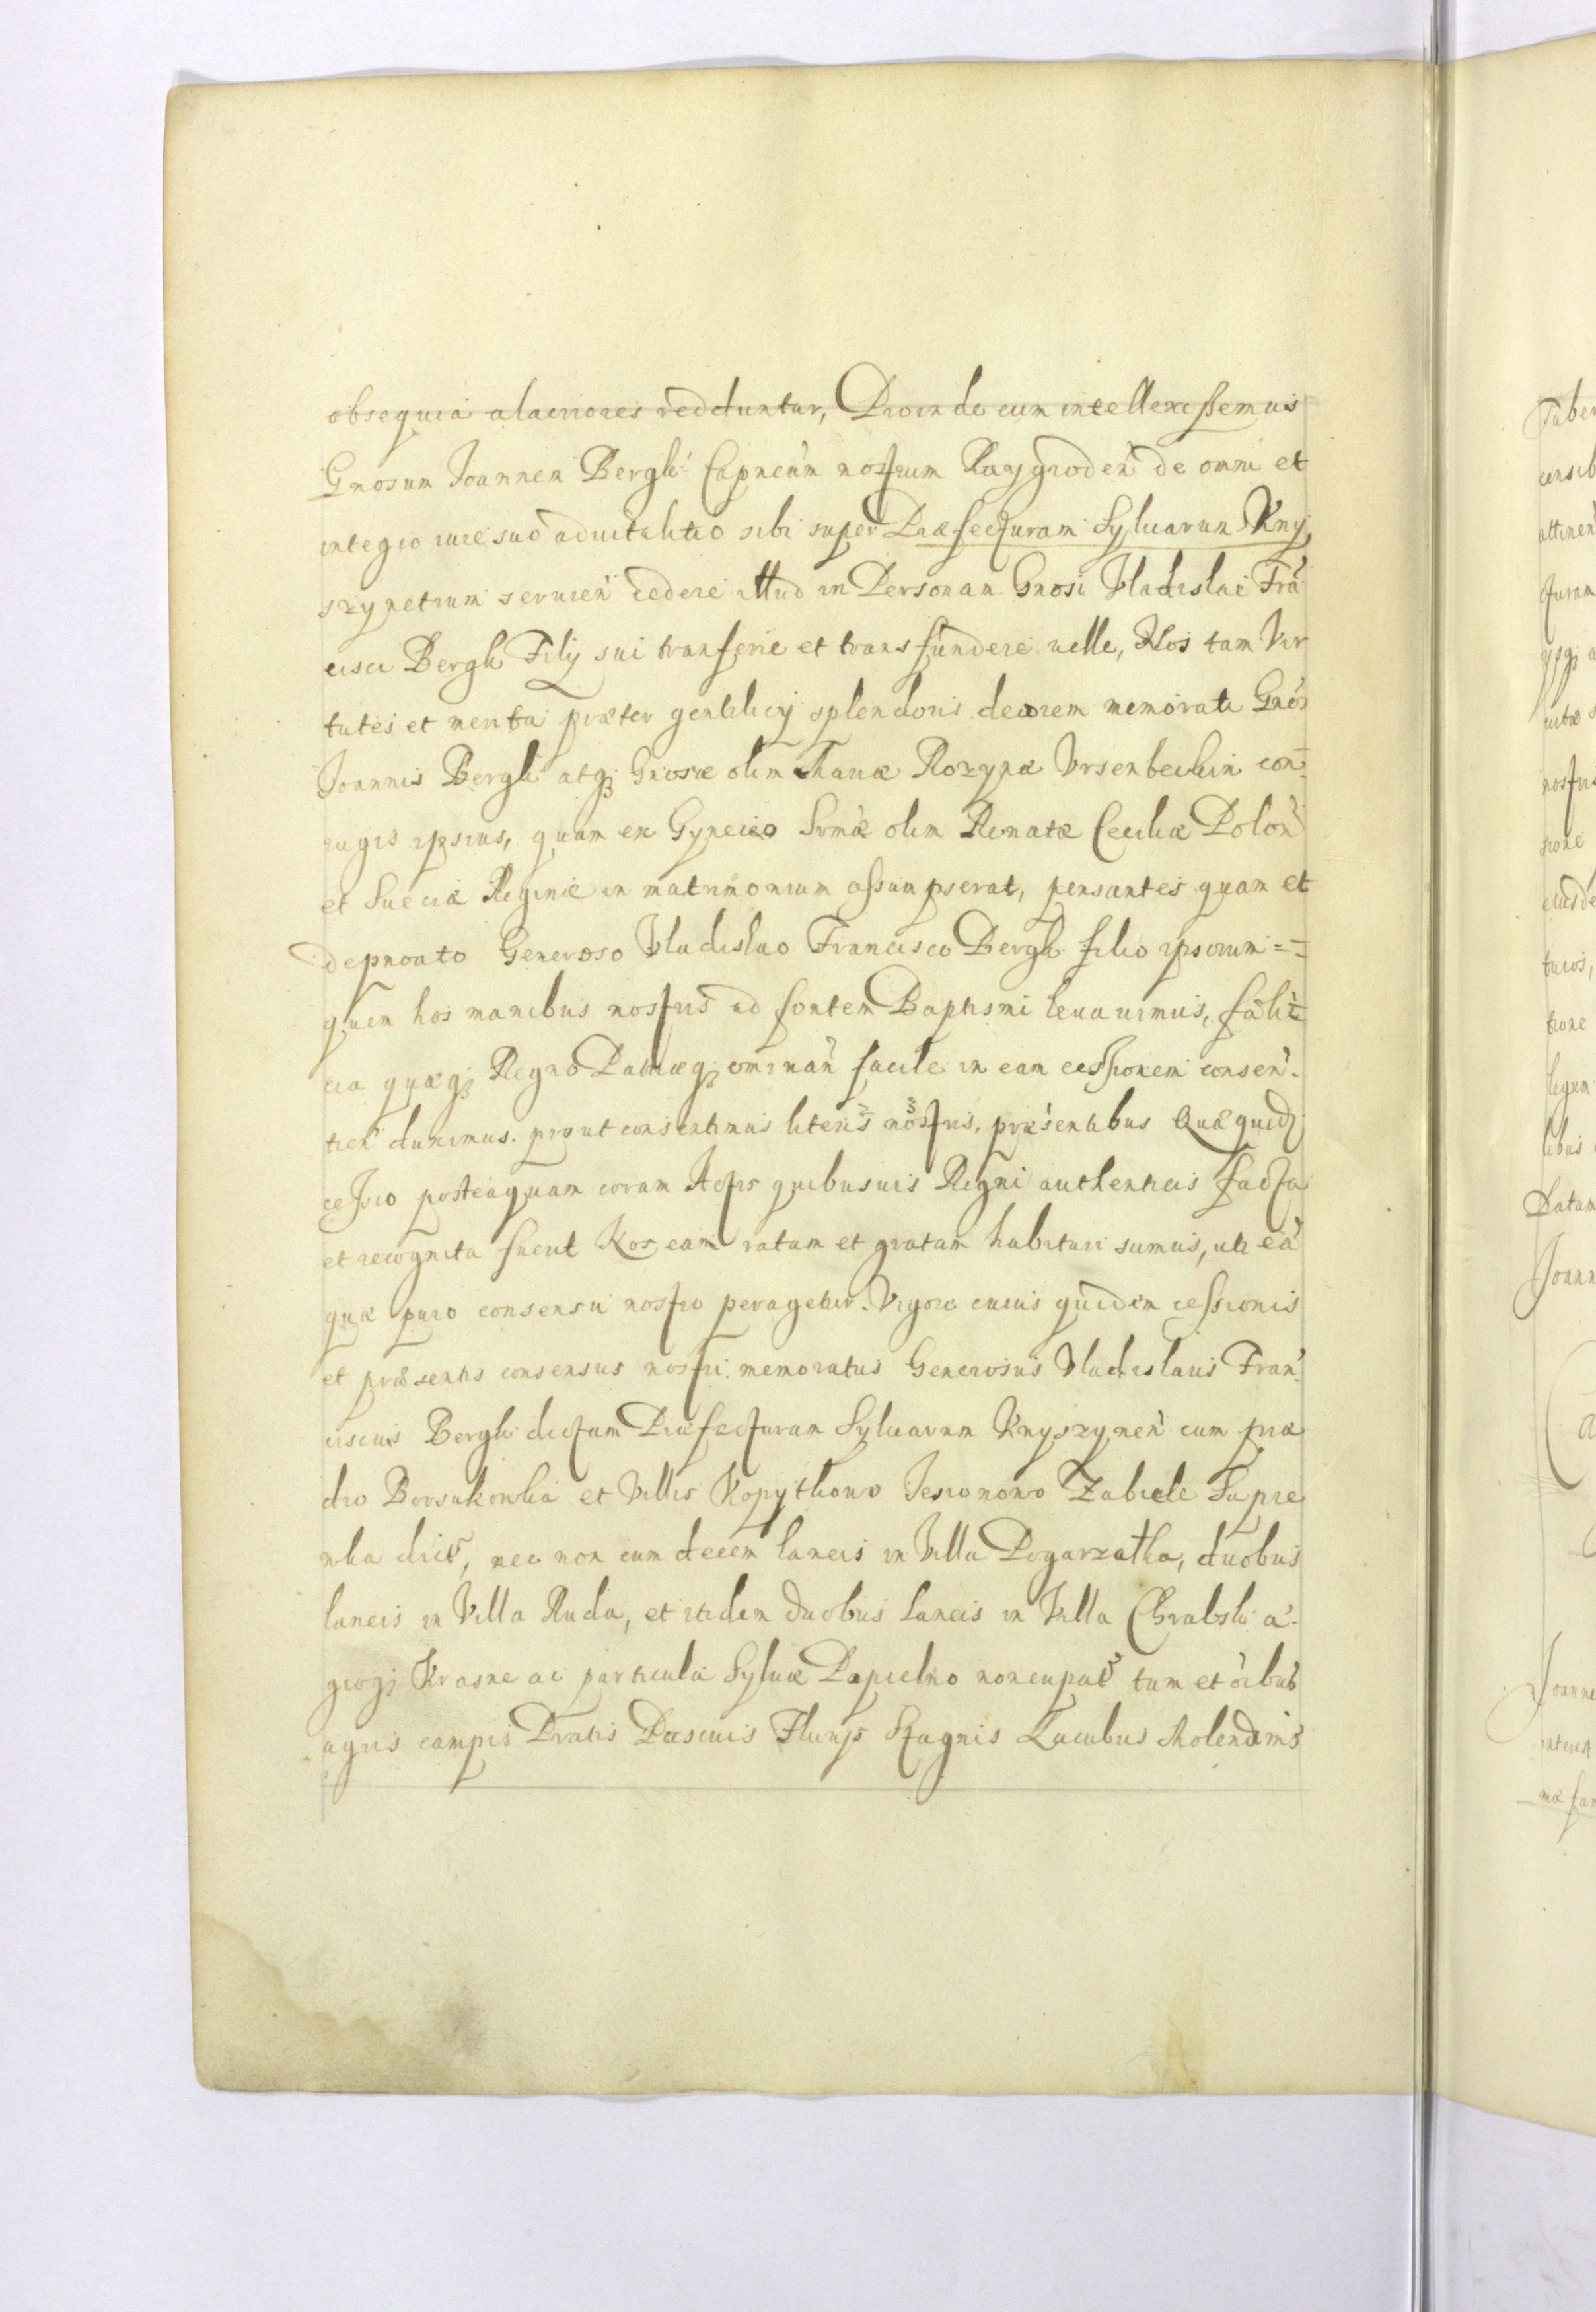 obsequia alacriores redduntur, Proinde cum intellexissemus
Gnosum Joannen Bergk Capneum nostrum Raygroden de omni et
integro iure suo aduitalitio sibi super Præfecturam Syluarum Kny
szynetium seruien cedere illud in Personam Gnosi Vladislai Fran
cisci Bergk Filij sui transferre et transfundere uelle, Nos tam Vir
tutes et merita præter gentilicij splendoris decorem memorati Gnos
Joannis Bergk atq Gnosæ olim Rozynæ Vrsenbeckin con-
iugis ipsius, quam ex Gyneceo Srmæ olim Renatæ Ceciliæ Polon
et Sueciæ Reginæ in matrimonium assumpserat, pensantes quam et
de pnoato Generoso Vladislao Francisco Bergk filio ipsorum =
quem hos manibus nostris ad fontem Baptismi leuauimus,
cia quæq Regno Patriæq ominan facile in eam cessionem consen-
tien duximus. prout consentimus literis nostris, præsentibus Quæ quid
cessio posteaquam coram Actis quibusuis Regni authenticis facta
et recognita fuerit Nos eam ratam et gratam habituri sumus, uti ea
quæ puro consensu nostro peragetur. Vigore cuius quidem cessionis
et præsentis consensus nostri memoratus Generosus Vladislaus Fran-
ciscus Bergk dictam Præfecturam Syluarum Knyszynen cum præ
dio Borsukowka et Villis Kopytkowo Jesionowo Zabiele Supre
wka dict, nec non cum decem laneis in Villa Pogorzatka, duobus
laneis in Villa Ruda, et itidem duobus Laneis in Villa Chrabski a-
groq Krasne ac particula Syluæ Popielno noncupat tum et oibus
agris campis Pratis Pascuis Fluuijs Stagnis Lacubus Molendinis